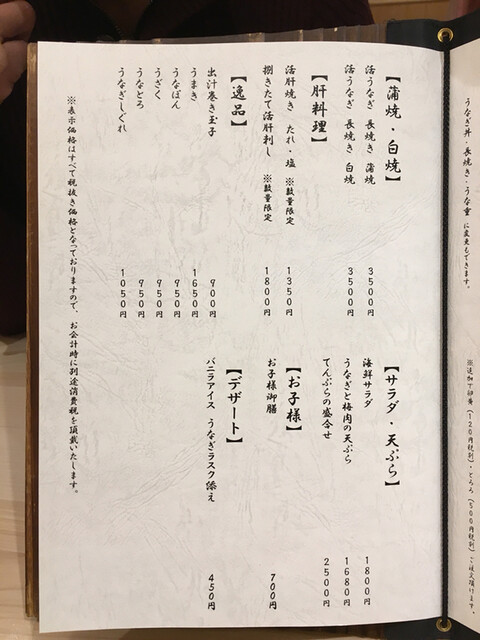 うなぎ丼・長焼き・うな重 に変更もできます。
※追加丁卵黄(120円税別)・とろろ(500円税別)ご注文頂けます。
【蒲焼・白焼】
活うなぎ 長焼き 蒲焼 3500円
活うなぎ 長焼き 白焼 3500円
【肝料理】
活肝焼き たれ・塩 ※数量限定 1350円
捌きたて活肝刺し ※数量限定 1800円
【逸品】
出汁巻き玉子 900円
うまき 1650円
うなぽん 950円
うざく 950円
うなとろ 950円
うなぎしぐれ 1050円
【サラダ・天ぷら】
海鮮サラダ 1800円
うなぎと梅肉の天ぷら 1680円
てんぷらの盛合せ 2500円
【お子様】
お子様御膳 700円
【デザート】
バニラアイス うなぎラスク添え 450円
※表示価格はすべて税抜き価格となっておりますので、お会計時に別途消費税を頂戴いたします。